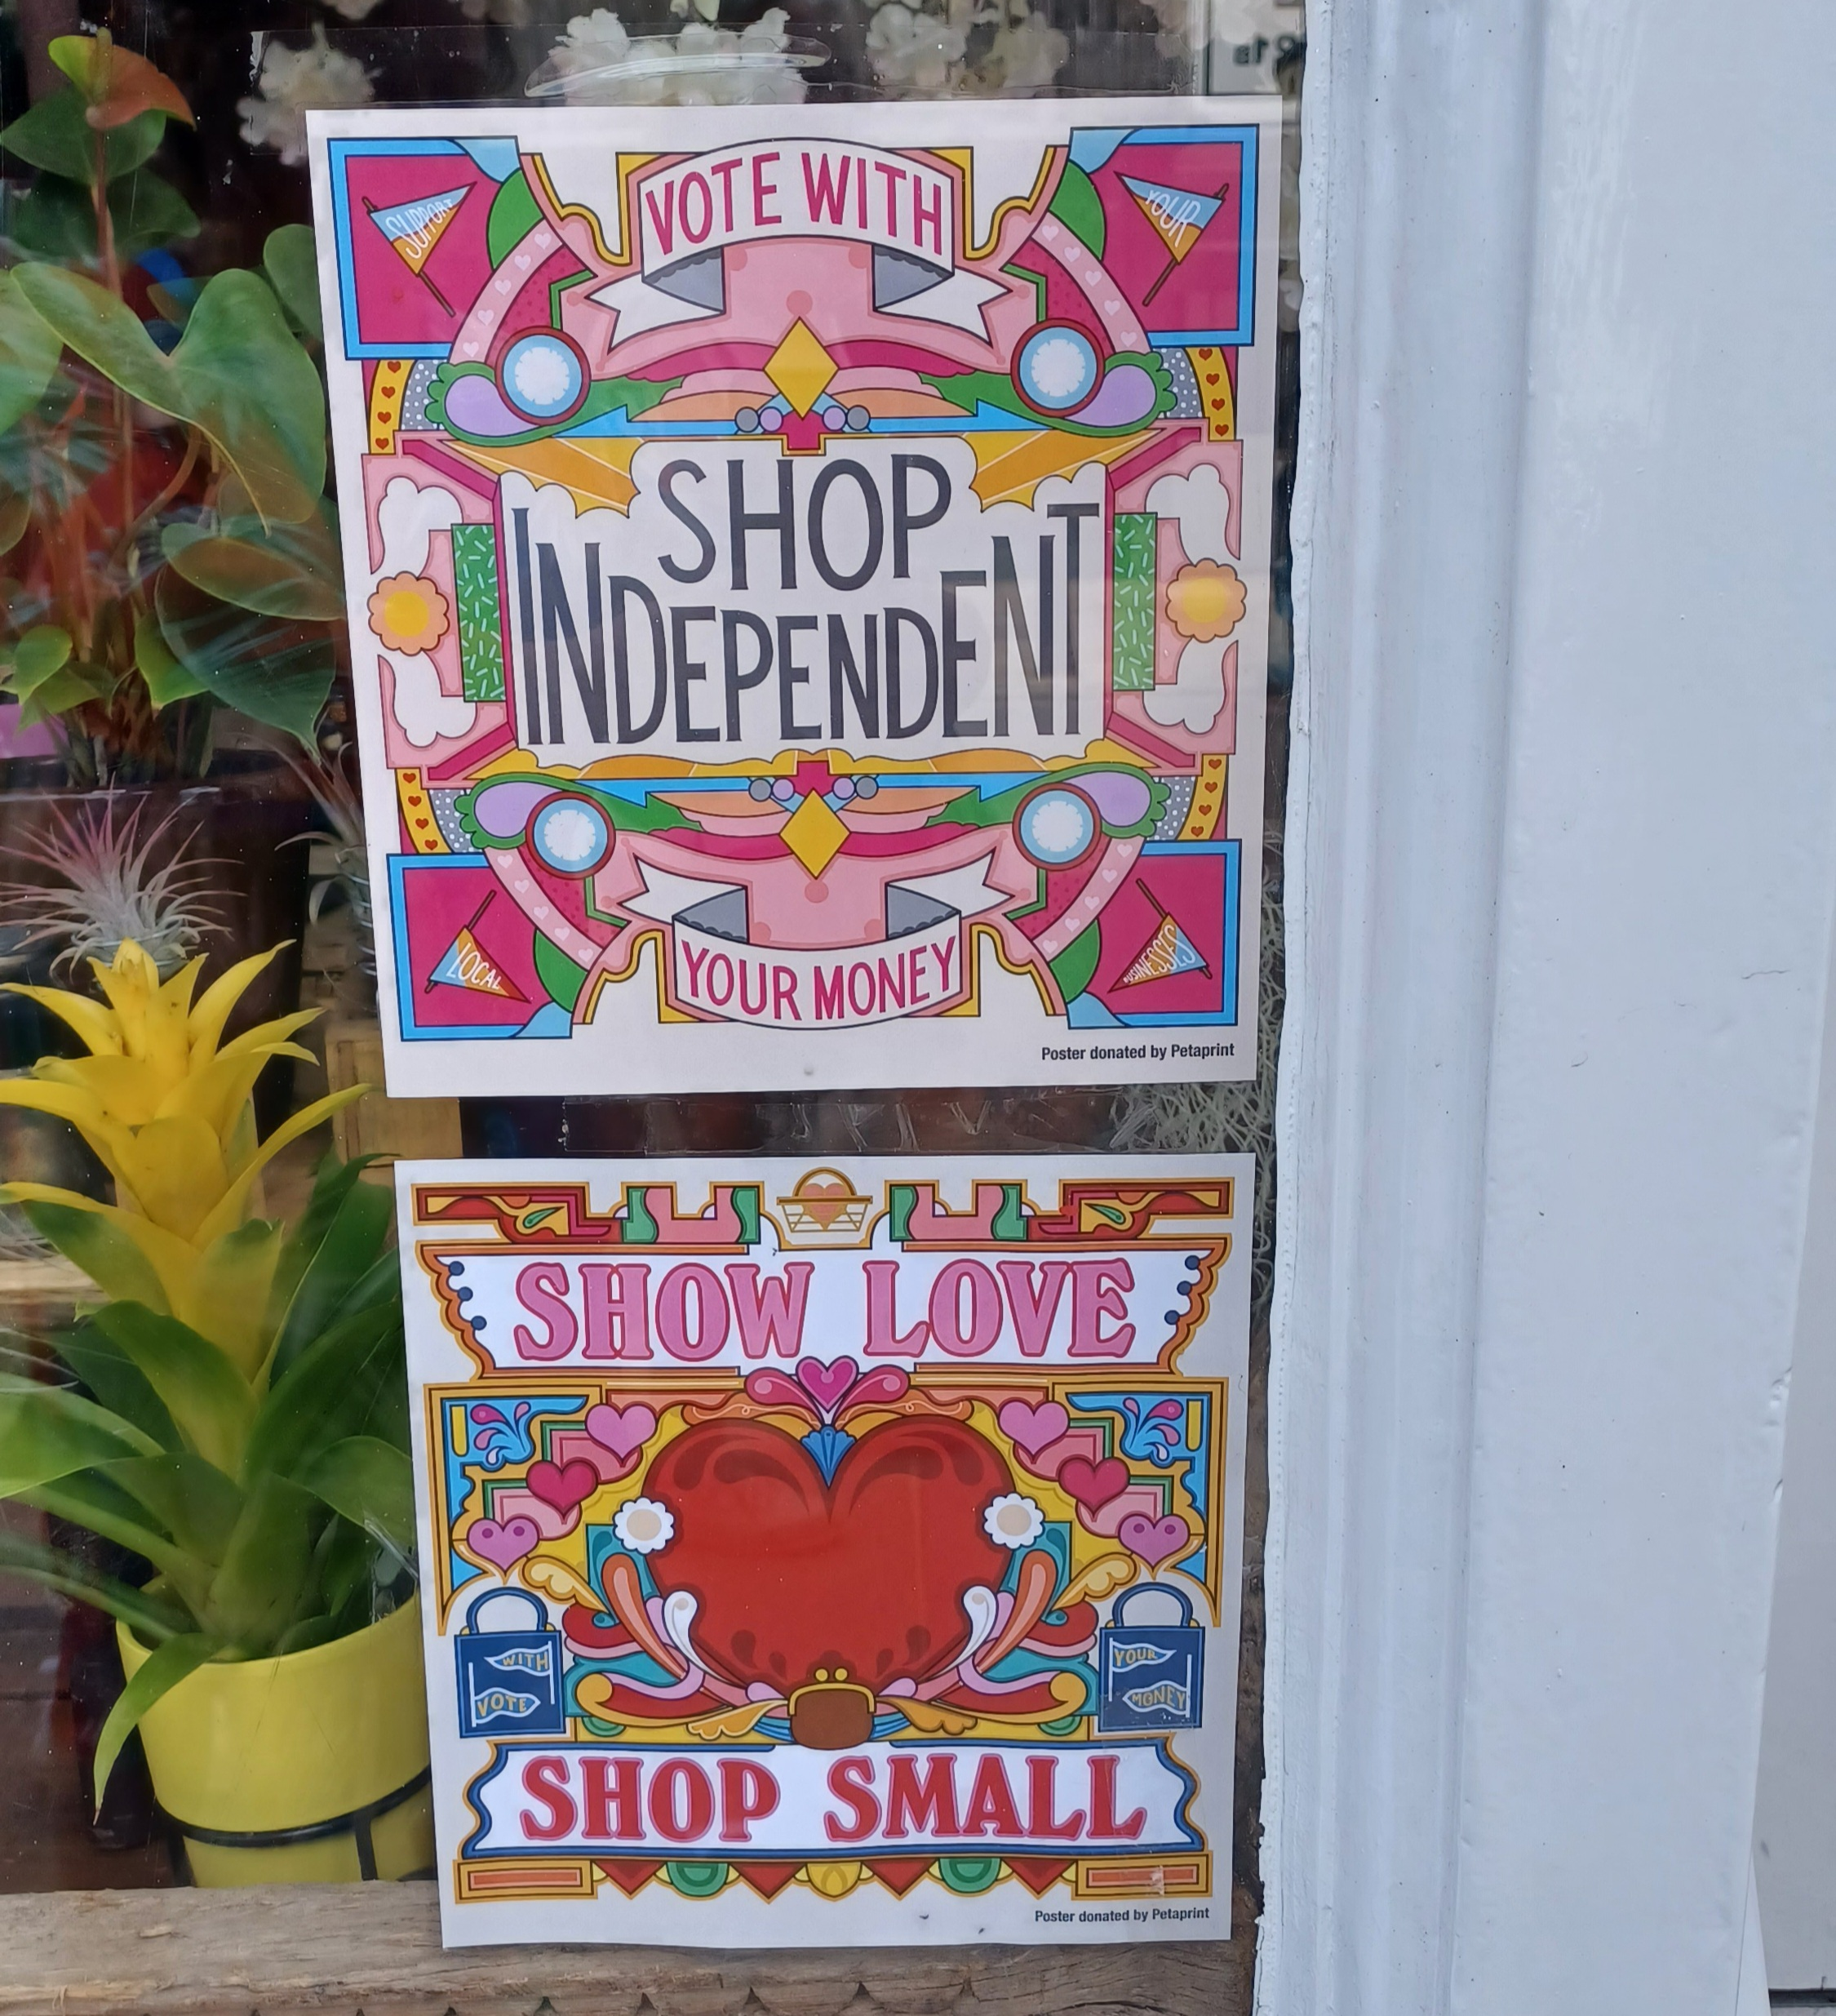 VOTE WITH
SUPPORT
YOUR
SHOP
INDEPENDENT
LOCAL
BUSINESSES
YOUR MONEY
Poster donated by Petaprint
SHOW LOVE
WITH
VOTE
YOUR
MONEY
SHOP SMALL
Poster donated by Petaprint